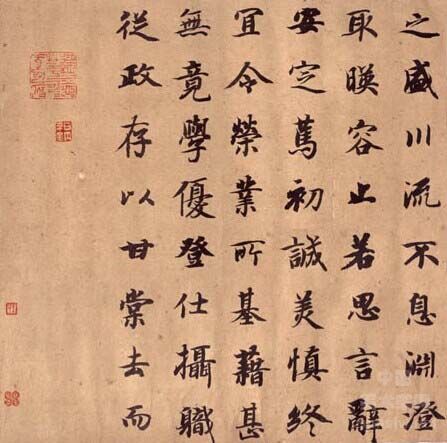 之盛川流不息淵澄
取暎容止若思言辭
安定篤初誠美慎終
宜令榮業所基藉甚
無竟學優登仕攝職
從政存以甘棠去而